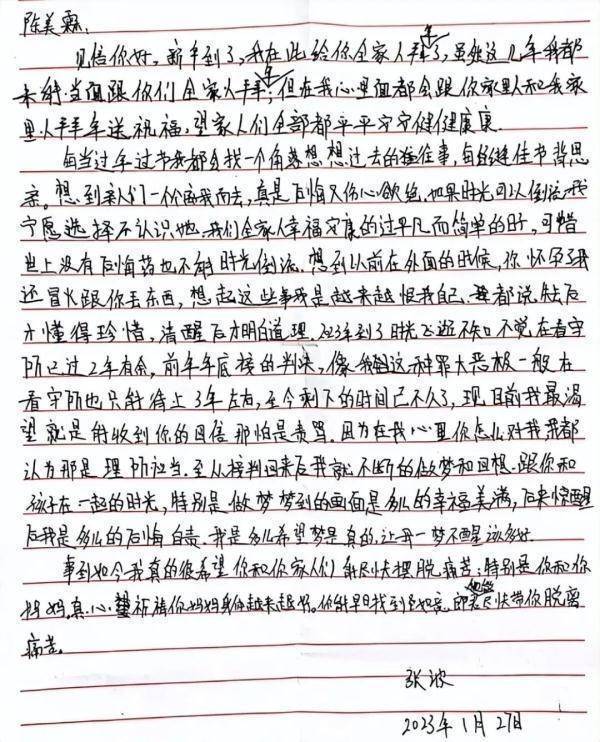 陈美霖:
见信你好,新年到了,我在此给你全家人拜年了,虽然这几年我都
未能当面跟你们全家人拜年,但在我心里面都会跟你家里人和我家
里人拜年送祝福,望家人们全部都平平安安健健康康.
每当过年过节我都会找一个角落想想过去的往事,每逢佳节倍思
亲。想到亲人们一个个离我而去,真是后悔又伤心欲绝,如果时光可以倒流我
宁愿选择不认识她.我们全家人幸福安康的过平凡而简单的日子,可惜
世上没有后悔药也不能时光倒流.想到以前在外面的时候,你怀孕了我
还冒火跟你丢东西,想起这些事我是越来越恨我自己.都说,失去后
才懂得珍惜,清醒后才明白道理.2023年到了时光飞逝不知不觉在看守
所已过2年有余,前年年底接的判决,像我们这种罪大恶极一般在
看守所也只能待上3年左右,至今剩下的时间已不久了,现目前我最渴
望就是能收到你的回信那怕是责骂.因为在我心里你怎么对我我都
认为那是理所应当.至从接判回来后我就不断的做梦和回想.跟你和
孩子在一起的时光,特别是做梦梦到的画面是多么的幸福美满,后来惊醒
后我是多么的后悔自责.我是多么希望梦是真的,让我一梦不醒该多好.
事到如今我真的很希望你和你家人们能尽快摆脱痛苦;特别是你和你
妈妈.真心祈祷你妈妈身体越来越好。你能早日找到如意郎君尽快带你脱离
痛苦。
张波
2023年1月27日